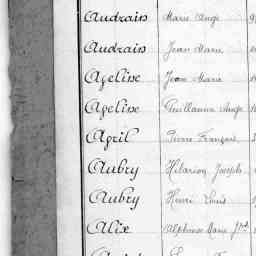 Audrain Marie Ange
Audrain Jean Marie
Azeline Jean Marie
Azeline Guillaume Ange
April Pierre François
Aubry Hilarion Joseph
Aubry Henri Louis
Alix Alphonse Marie Jph